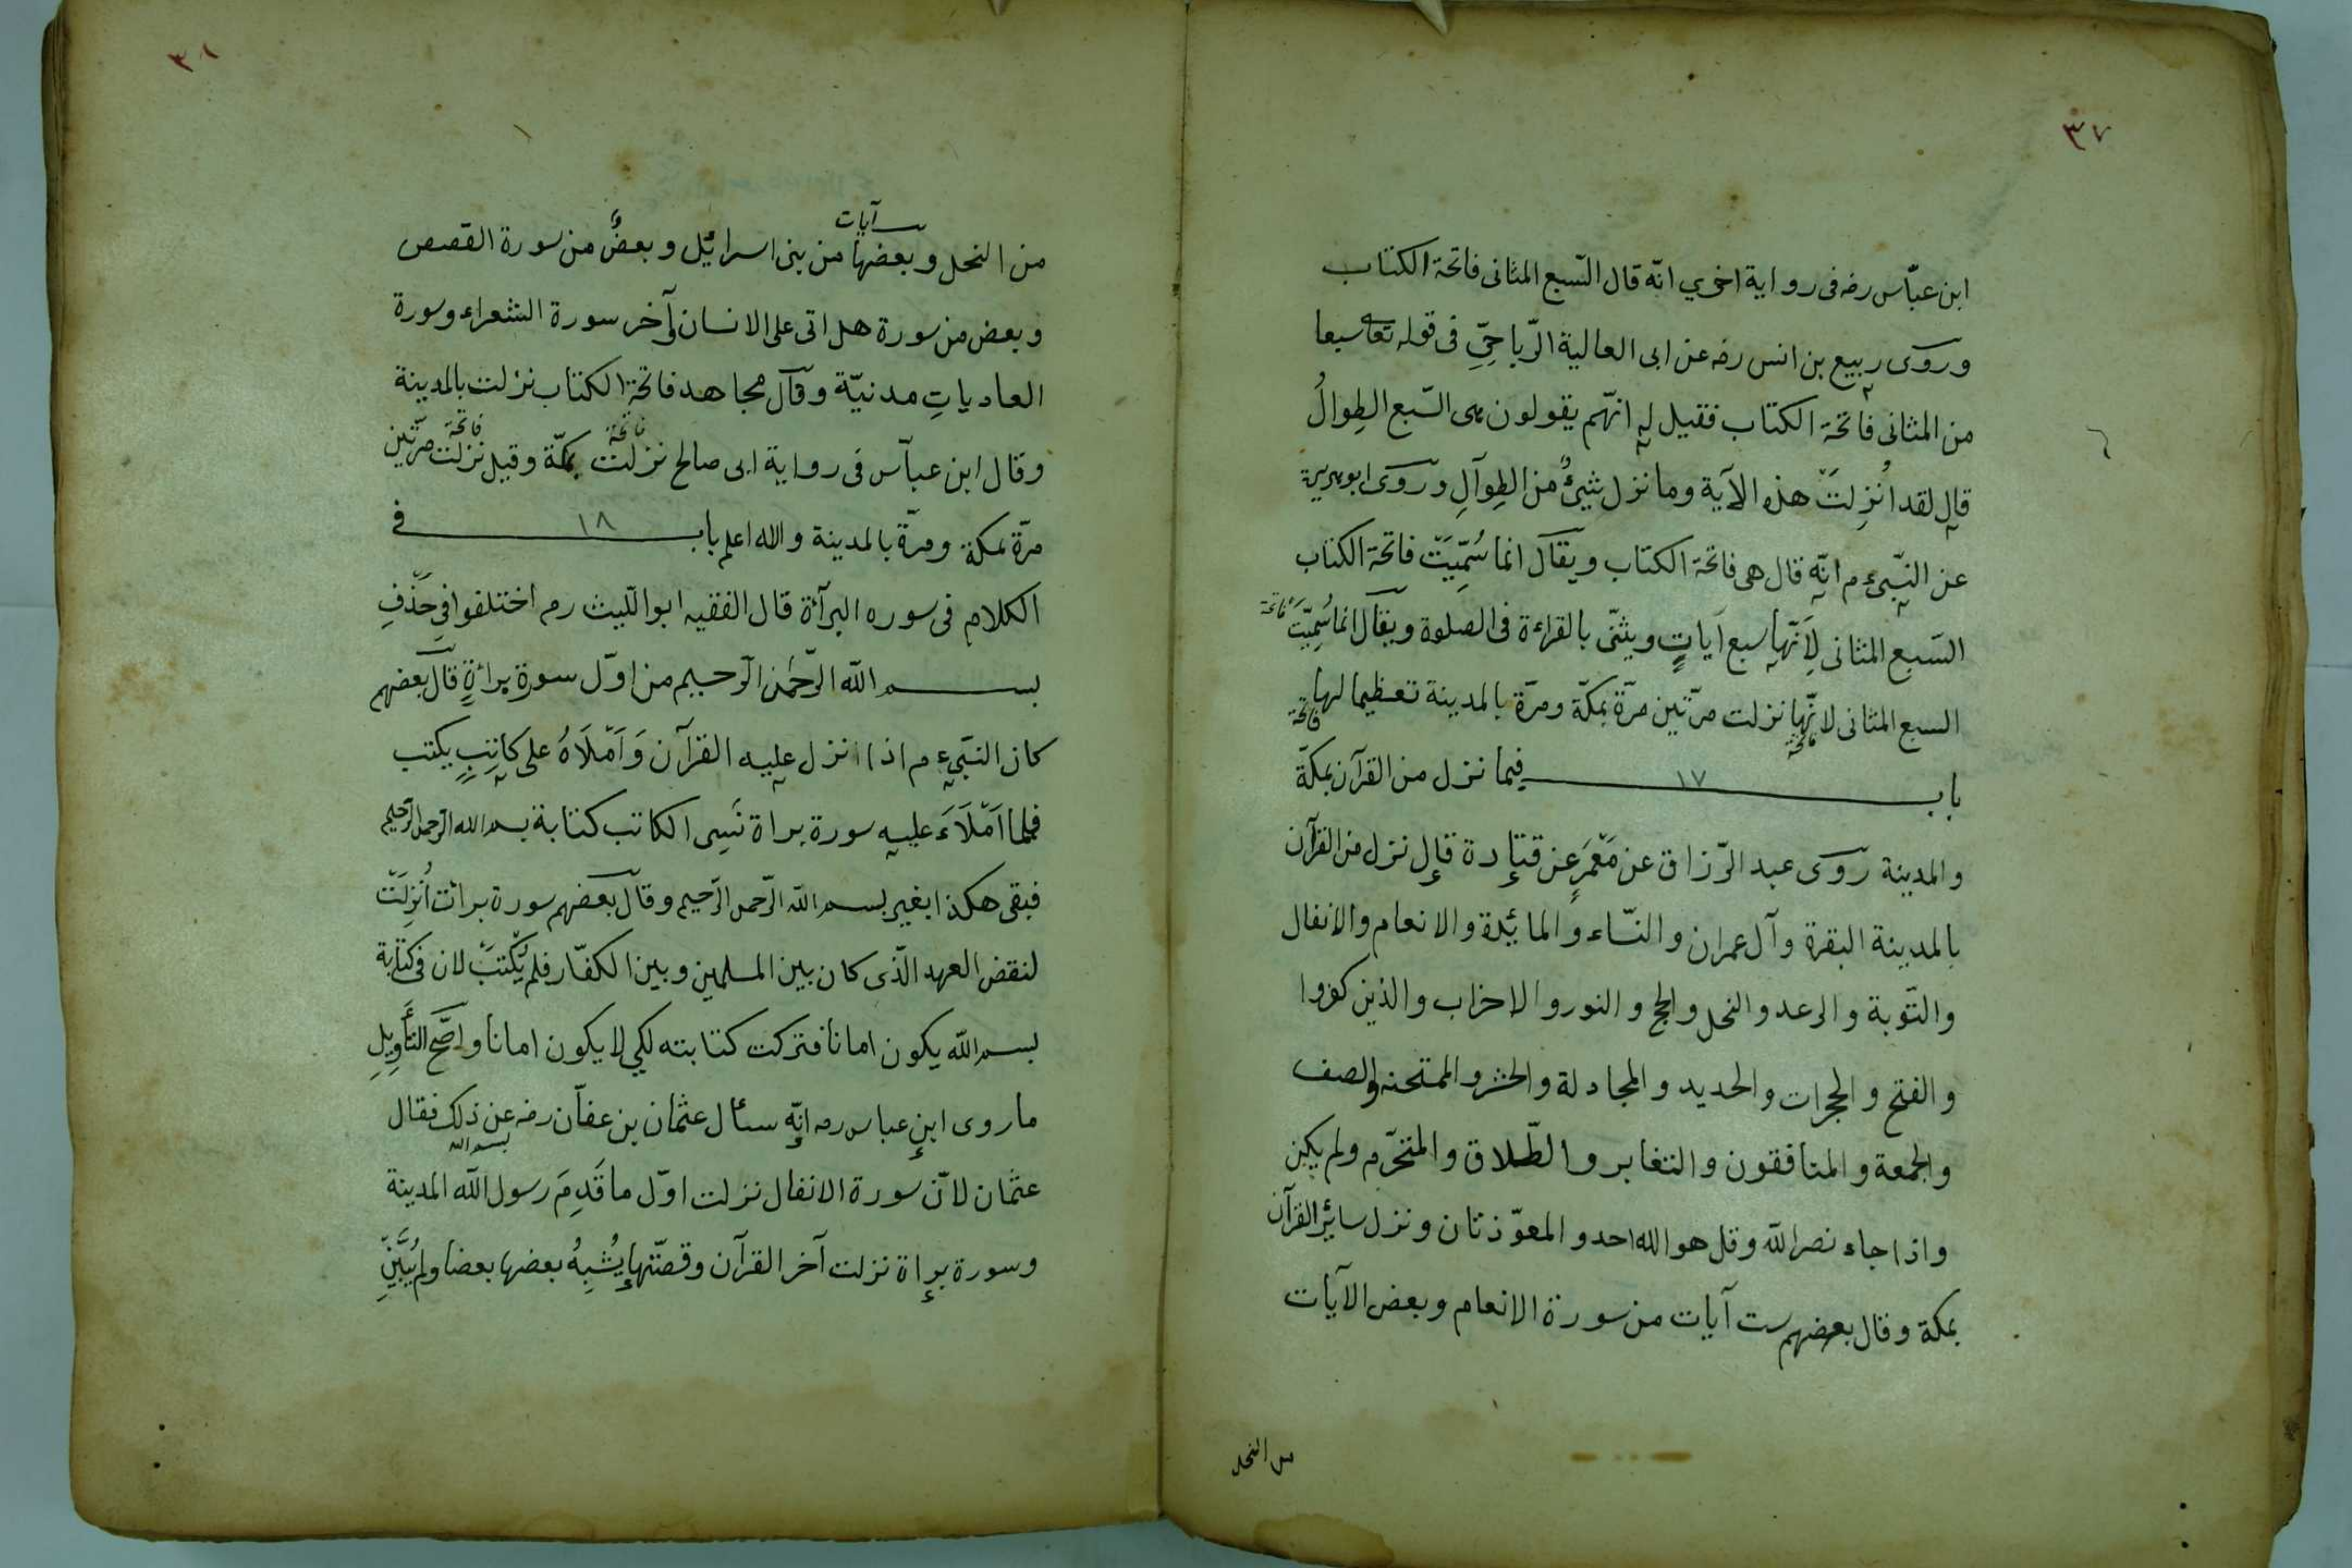 ٣٧
ابن عبّاس رضه فى رواية اخرى انّه قال السّبع المثانى فاتحة الكتاب
وروى ربيع بن انس رضه عن ابى العالية الرّياحِىِّ فى قوله تعا سبعا
من المثانى فاتحة الكتاب فقيل له انّهم يقولون هى السّبع الطِوالُ
قال لقد اُنْزِلَتْ هذه الآية وما نزل شيئٌ من الطِوالِ وروى ابو هريرة
عن النّبىء م انّه قال هى فاتحة الكتاب ويقال انما سُمِّيَتْ فاتحة الكتاب
السّبع المثانى لِاَنّها سبع آياتٍ ويثنّى بالقراءة فى الصلوة ويقال انما سُمِّيَتْ فاتحة
السبع المثانى لانّها نزلت مرّتين مرّة بمكّة ومرّة بالمدينة تعظيما لها
فاتحة فاتحة
باب ١٧ فيما نزل من القرآن بمكّة
والمدينة روى عبد الرّزاق عن مَعْمَرٍ عن قتادة قال نزل من القرآن
بالمدينة البقرة وآل عمران والنّساء والمائدة والانعام والانفال
والتّوبة والرعد والنحل والحج والنور والاحزاب والذين كفروا
والفتح والحجرات والحديد والمجادلة والحشر والممتحنه والصف
والجمعة والمنافقون والتغابر والطّلاق والمتحرّم ولم يكن
واذا جاء نصر اللّه وقل هو الله احد والمعوّذتان ونزل سائر القرآن
بمكة وقال بعضهم ست آيات من سورة الانعام وبعض الآيات
من النحل
٣٨
آيات
من النحل وبعضها من بنى اسرائيل وبعضٌ من سورة القصص
وبعض من سورة هل اتى على الانسان وآخر سورة الشعراء وسورة
العادياتِ مدنيّة وقال مجاهد فاتحة الكتاب نزلت بالمدينة
فاتحة فاتحة
وقال ابن عباس فى رواية ابى صالح نزلت بمكّة وقيل نزلت مرّتين
مرّة بمكة ومرّة بالمدينة والله اعلم باب ١٨ فى
الكلام فى سوره البرآة قال الفقيه ابو اللّيث رم اختلفوا فى حَذْفِ
بسم اللّه الرّحمٰن الرّحيم من اوّل سورة براةٍ قال بعضهم
كان النبىء م اذا نزل عليه القرآن وَاَمْلَاَهُ على كاتبٍ يكتب
فلما اَمْلَاَءَ عليه سورة براة نَسِى الكاتب كتابة بسم الله الرّحمن الرّحيم
فبقى هكذا بغير بسم اللّه الرّحمن الرّحيم وقال بعضهم سورة برائت اُنْزِلَتْ
لنقض العهد الّذى كان بين المسلمين وبين الكفّار فلم يُكْتَبْ لان فى كتابة
بسم اللّه يكون امانا فتركت كتابته لكى لا يكون امانا واصحّ التأويلِ
ما روى ابن عباس رم انّه سئال عثمان بن عفان رضه عن ذلك فقال
بسم الله
عثمان لانّ سورة الانفال نزلت اوّل ما قَدِمَ رسول اللّه المدينة
وسورة براة نزلت آخر القرآن وقصّتها يُشْبِهُ بعضها بعضا ولم يُبَيِّنْ